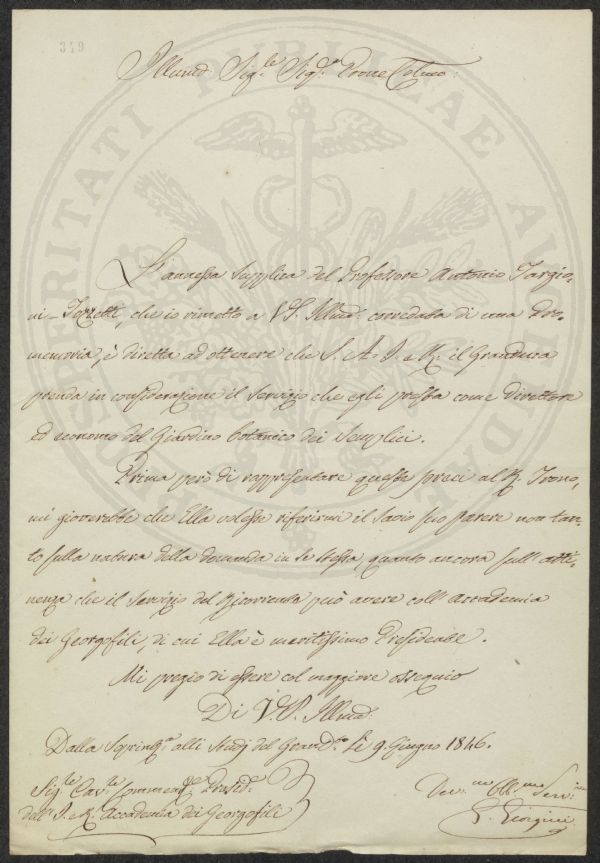 349
Illmo: Sigle Sigr Prone Colmo:
L'annessa supplica del Professore Antonio Targio-
ni-Tozzetti, che io rimetto a V.S. Illma: corredata di una Pro-
memoria, è diretta ad ottenere che S. A. I. e R. il Granduca
prenda in considerazione il servizio che egli presta come direttore
ed economo del Giardino botanico dei Semplici.
Prima però di rappresentare queste preci al R. Trono,
mi gioverebbe che Ella volesse riferirmi il savio suo parere non tan-
to sulla natura della domanda in se stessa, quanto ancora sull'atti-
nenza che il servizio del Ricorrente può avere coll'Accademia
dei Georgofili, di cui Ella è meritissimo Presidente.
Mi pregio di essere col maggiore ossequio
Di V.S. Illma:
Dalla Soprinza alli Studj del Grando Li 9. Giugno 1846.
Sigle Cavle Commende Presidte
dell'I. e R. Accademia dei Georgofili
Devmo Obbmo Servre
G. Giorgini
PROSPERITATI PUBLICAE AUGENDAE